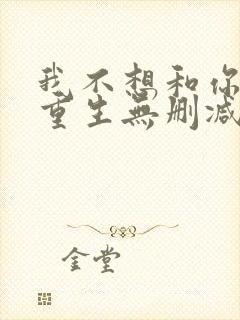 我不想和你
重生無刪減
金堂